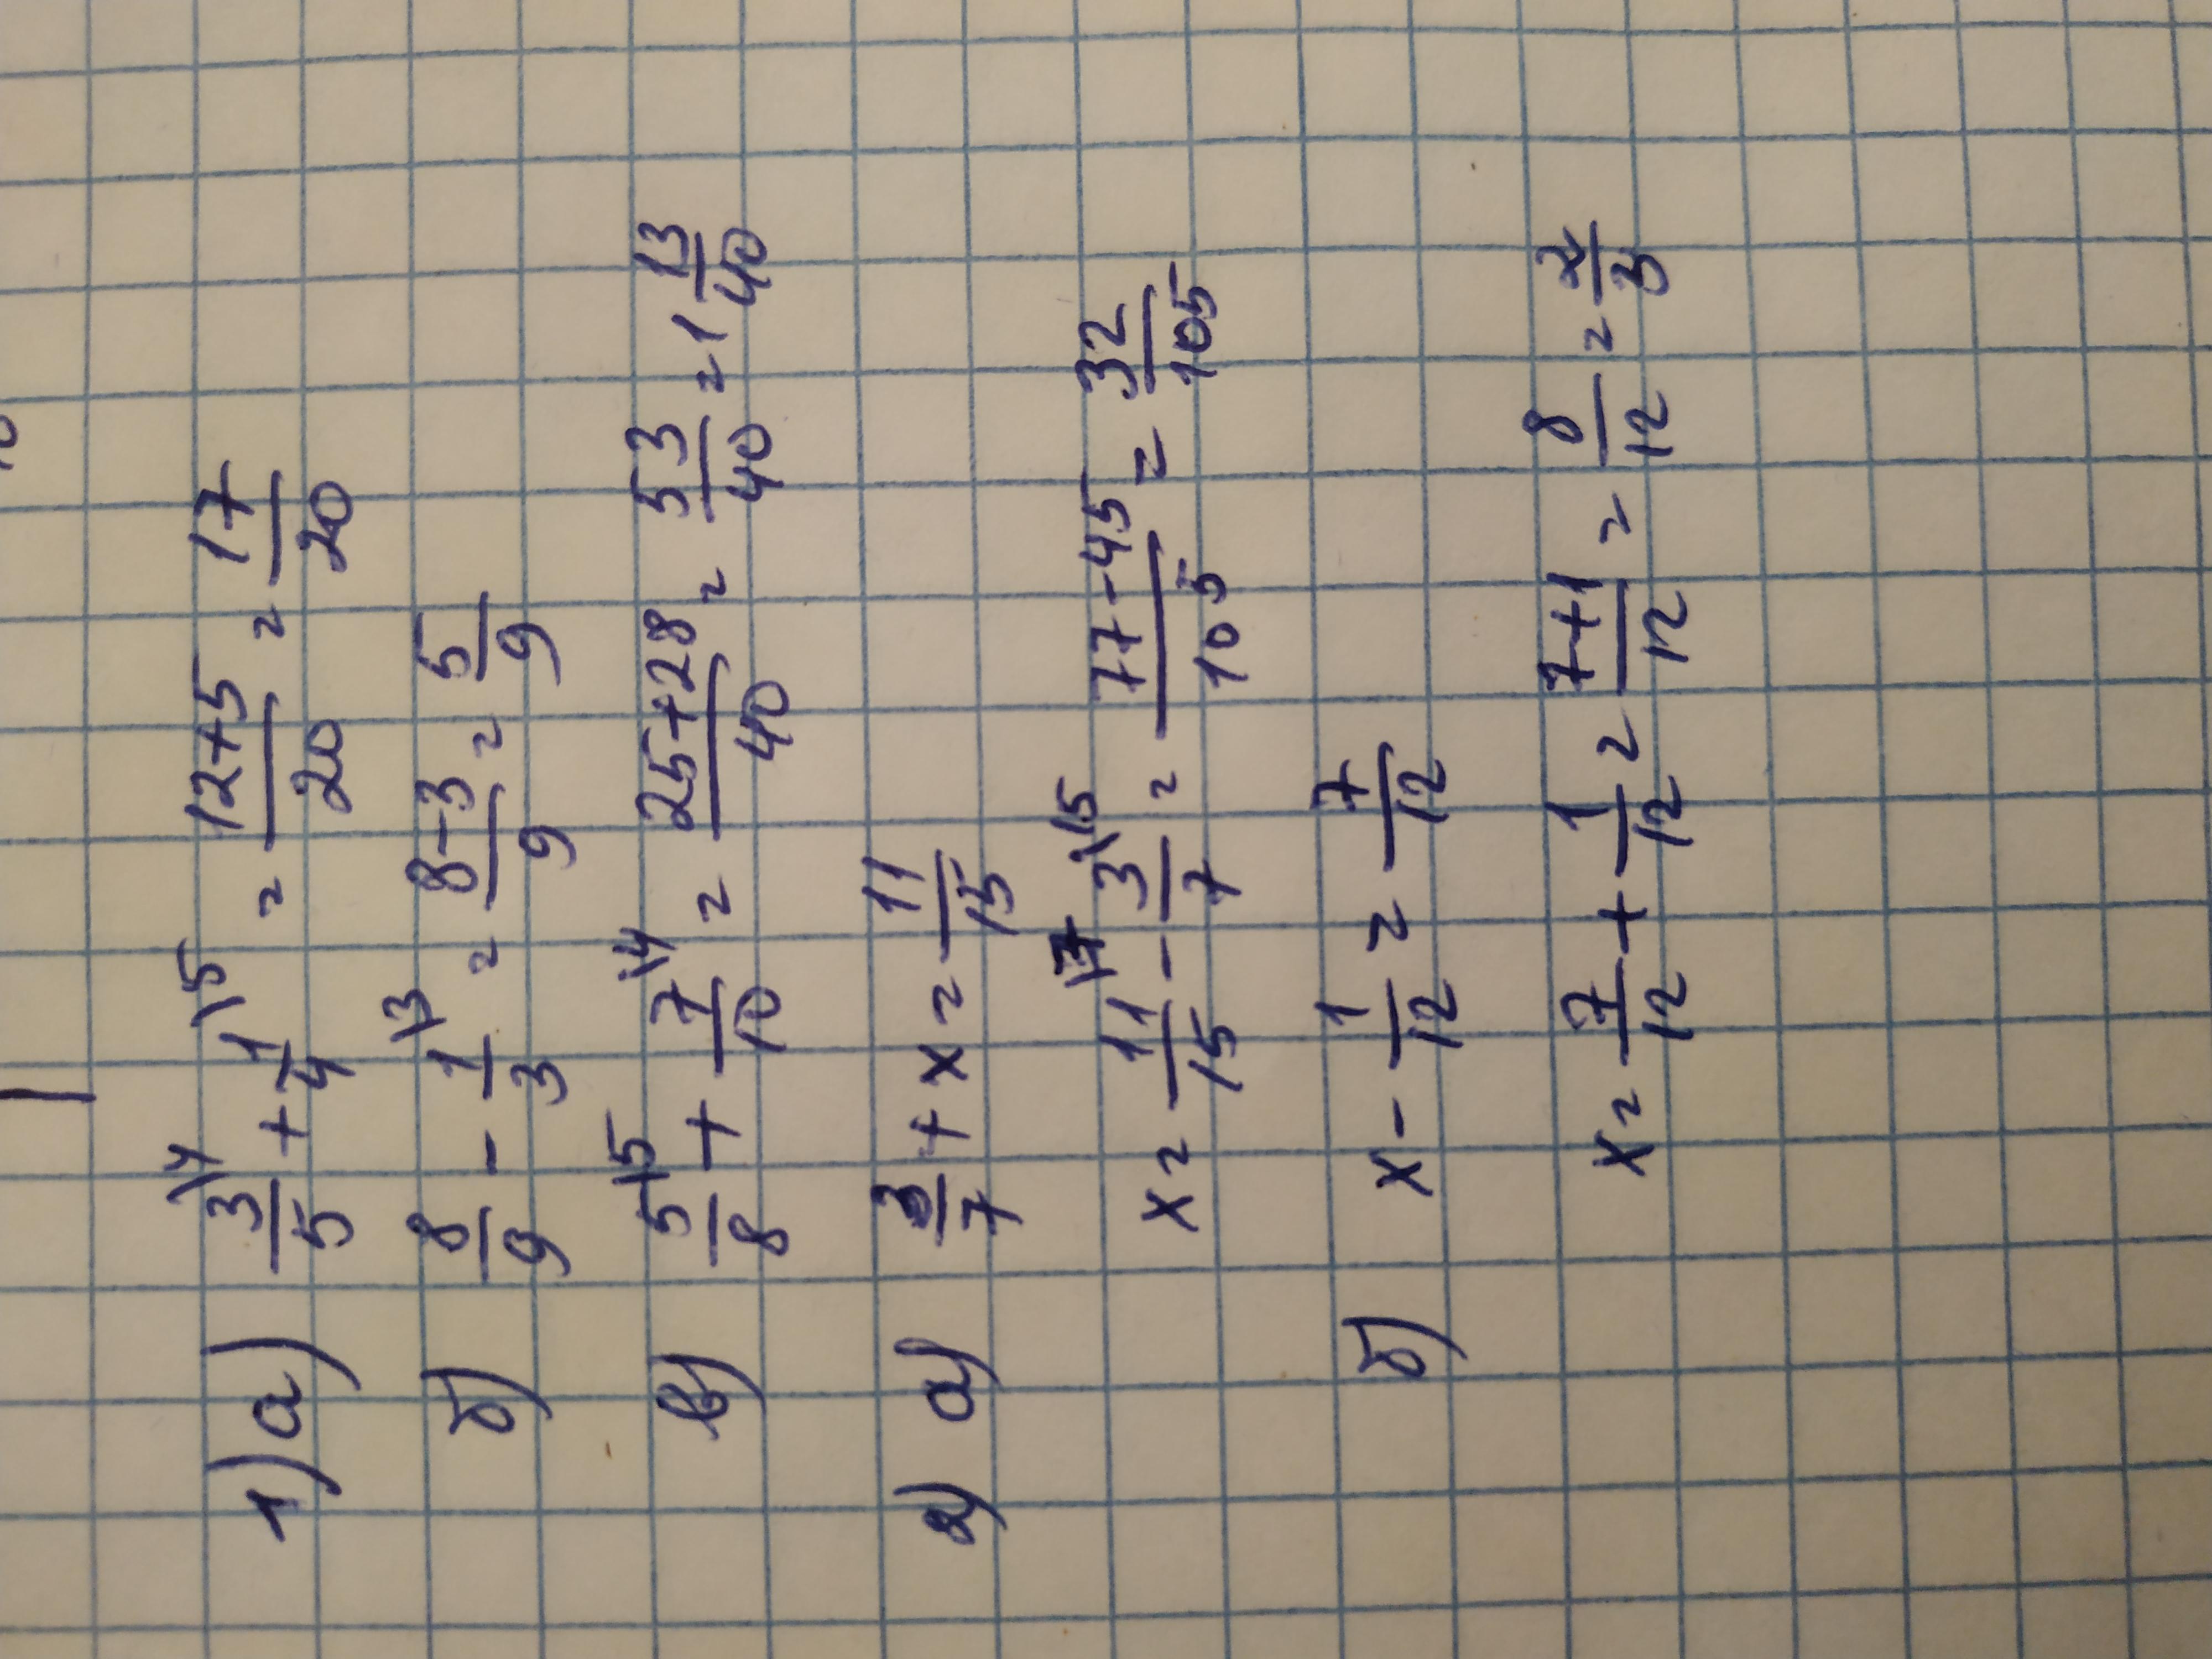 1) а) 3\4/5 + 1\5/4 = 12+5/20 = 17/20
б) 8/9 - 1\3/3 = 8-3/9 = 5/9
в) 5\5/8 + 7\4/10 = 25+28/40 = 53/40 = 1 13/40
2) а) 3/7 + x = 11/15
x = 11\7/15 - 3\15/7 = 77-45/105 = 32/105
б) x - 1/12 = 7/12
x = 7/12 + 1/12 = 7+1/12 = 8/12 = 2/3